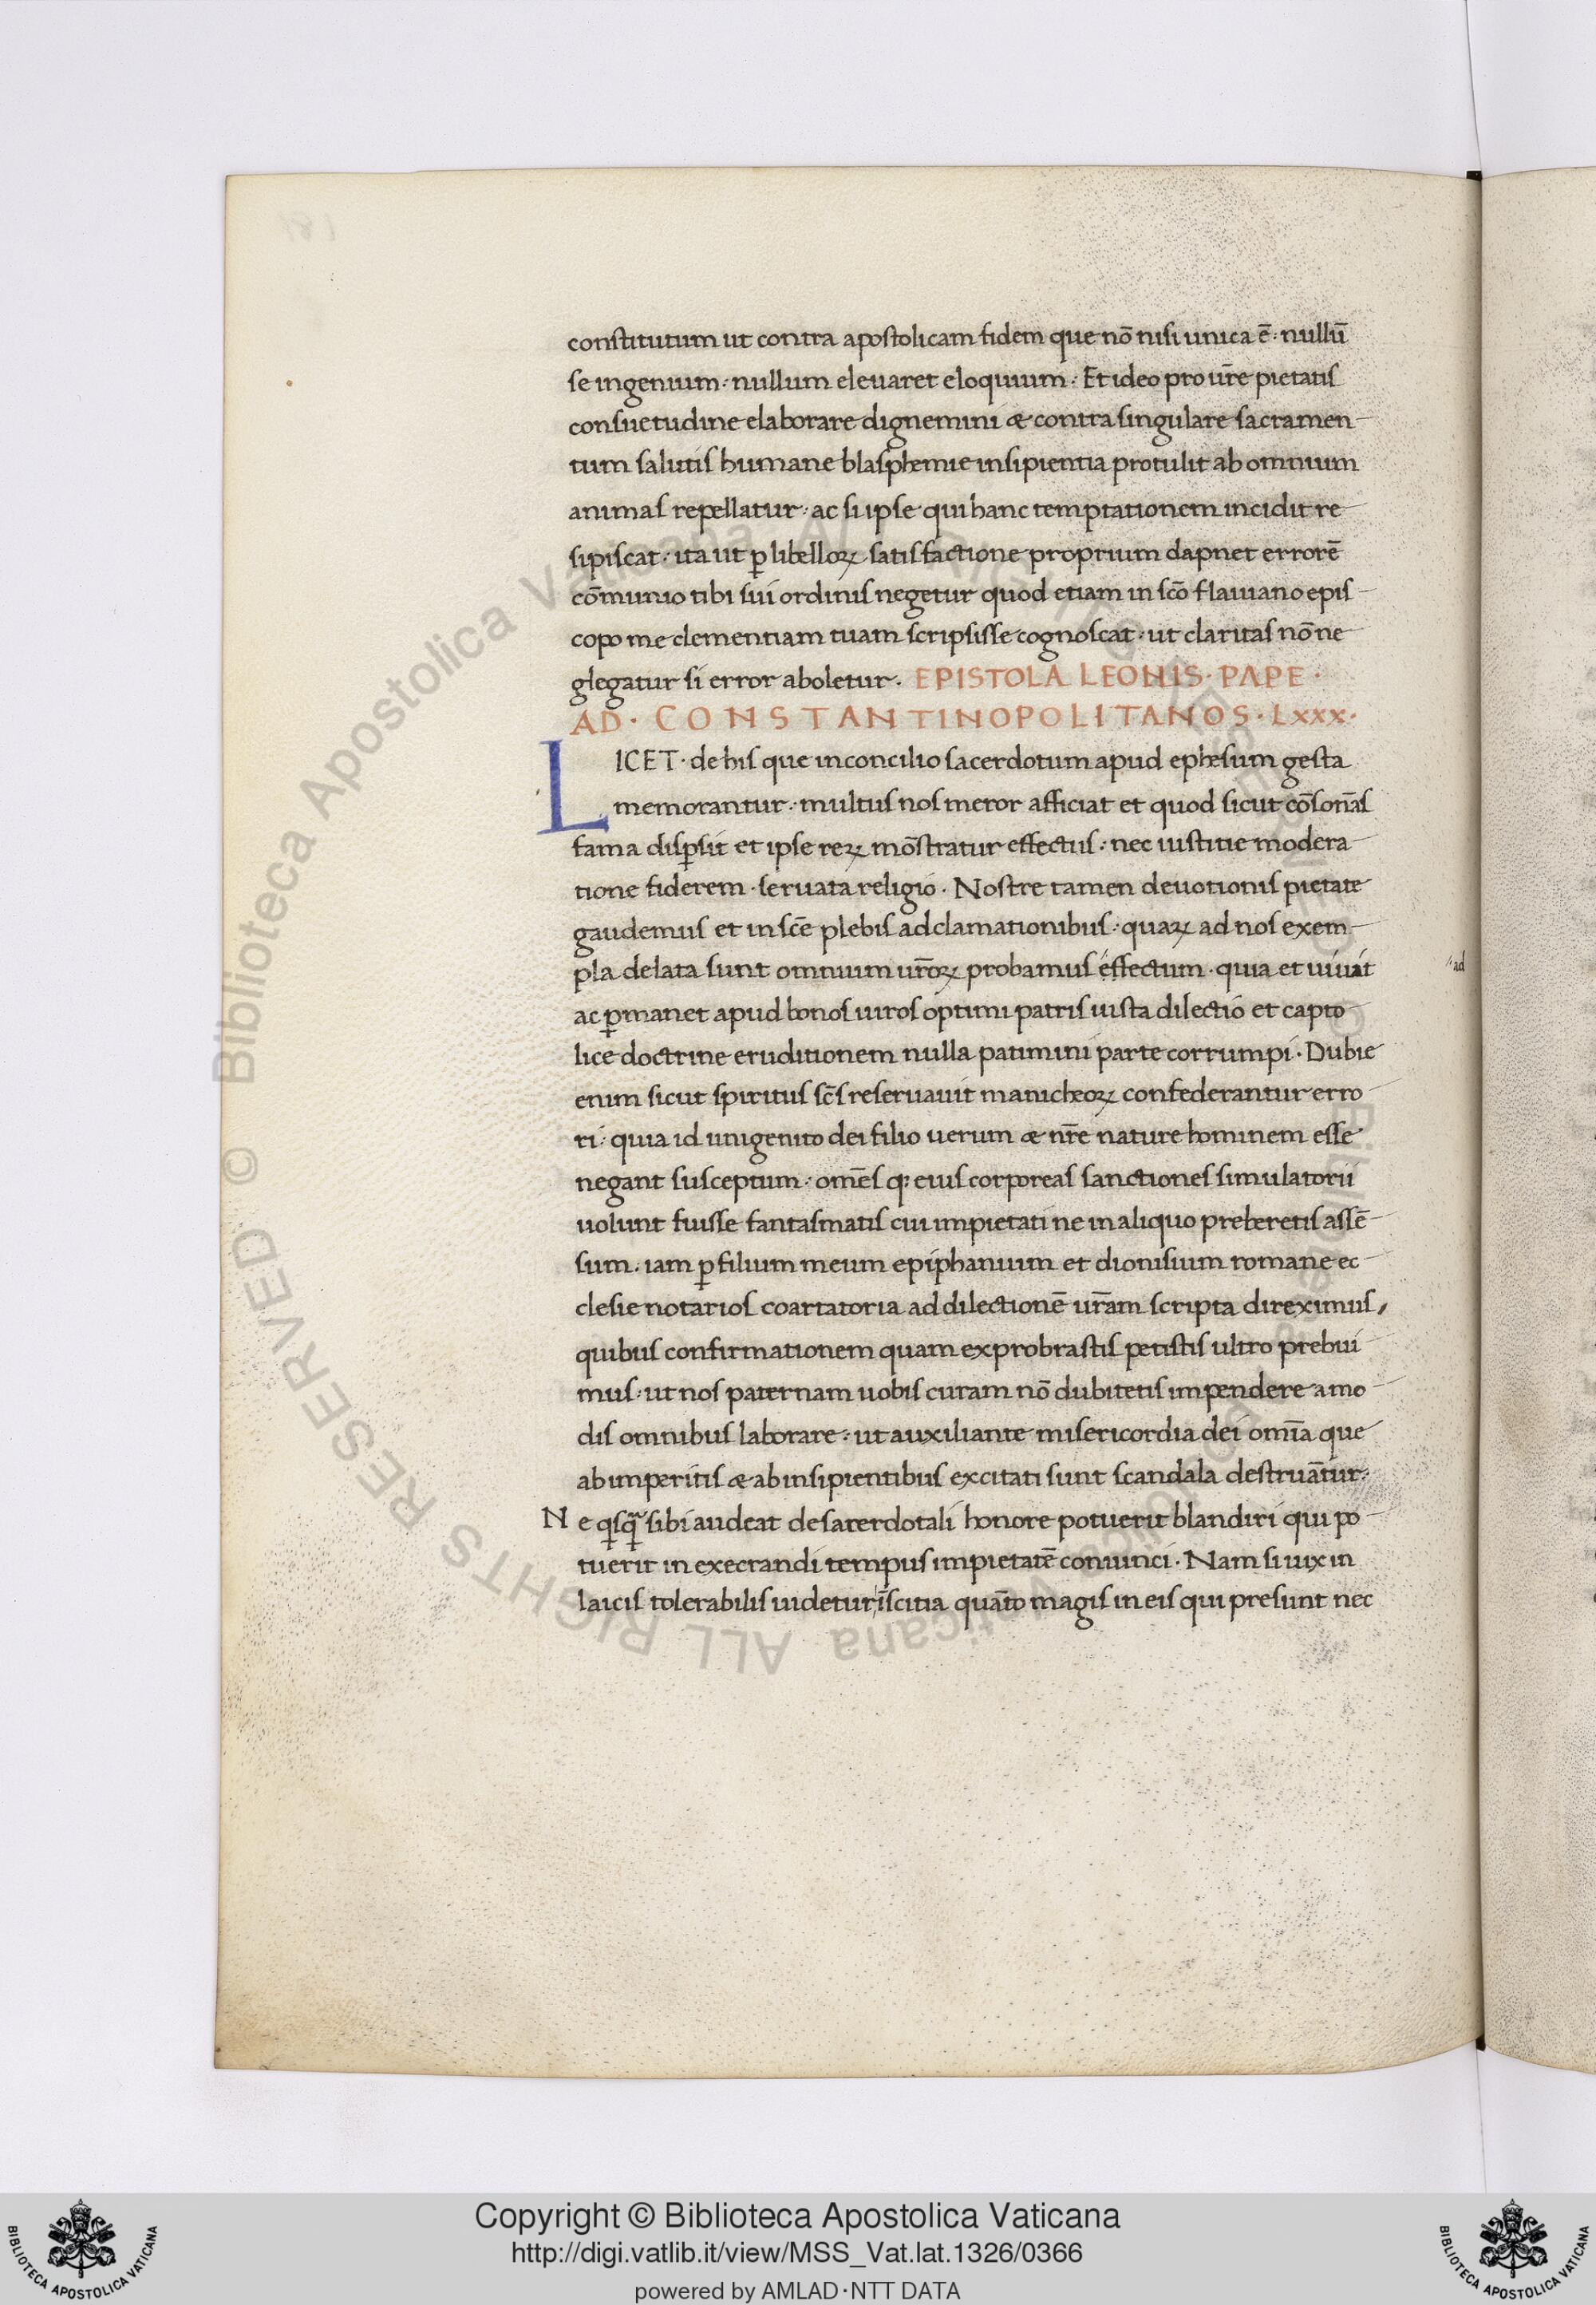 constitutum ut contra apostolicam fidem que nō nisi unica ē· nullū
se ingenium· nullum eleuaret eloquium· Et ideo pro ur̄e pietatis
consuetudine elaborare dignemini & contra singulare sacramen
tum salutis humane blasphemie insipientia protulit ab omnium
animas repellatur· ac si ipse qui hanc temptationem incidit re
sipiscat· ita ut ꝑ libelloꝝ satisfactione proprium dapnet errorē
cōmunio tibi sui ordinis negetur quod etiam in scō flauiano epis
copo me clementiam tuam scripsisse cognoscat· ut claritas nō ne
glegatur si error aboletur. EPISTOLA LEONIS· PAPE·
AD· CONSTANTINOPOLITANOS· Lxxx·
LICET· de his que in concilio sacerdotum apud ephesum gesta
memorantur· multus nos meror afficiat et quod sicut cōsonās
fama disꝑsit et ipse reꝝ mōstratur effectus· nec iustitie modera
tione fiderem· seruata religio· Nostre tamen deuotionis pietate
gaudemus et in scē plebis adclamationibus· quaꝝ ad nos exem
pla delata sunt omnium ur̄oꝝ probamus effectum· quia et uiuit
ad
ac ꝑmanet apud bonos uiros optimi patris iusta dilectio et capto
lice doctrine eruditionem nulla patimini parte corrumpi· Dubie
enim sicut spiritus scs̄ reseruauit manicheoꝝ confederantur erro
ri· quia id unigenito dei filio uerum & nr̄e nature hominem esse
negant susceptum· omēs qꝫ eius corporeas sanctiones simulatorii
uolunt fuisse fantasmatis cui impietati ne in aliquo preberetis assē
sum· iam ꝑ filium meum epiphanium et dionisium romane ec
clesie notarios coartatoria ad dilectionē ur̄am scripta direximus,
quibus confirmationem quam exprobrastis petistis ultro prebui
mus· ut nos paternam uobis curam nō dubitetis impendere a mo
dis omnibus laborare· ut auxiliante misericordia dei omīa que
ab imperitis & ab insipientibus excitati sunt scandala destruātur·
Ne qͥsqᷓ sibi audeat de sacerdotali honore potuerit blandiri qui po
tuerit in execrandi tempus impietatē coniunci· Nam si uix in
laicis tolerabilis uidetur īscitia quāto magis in eis qui presunt nec
Copyright © Biblioteca Apostolica Vaticana
http://digi.vatlib.it/view/MSS_Vat.lat.1326/0366
powered by AMLAD·NTT DATA